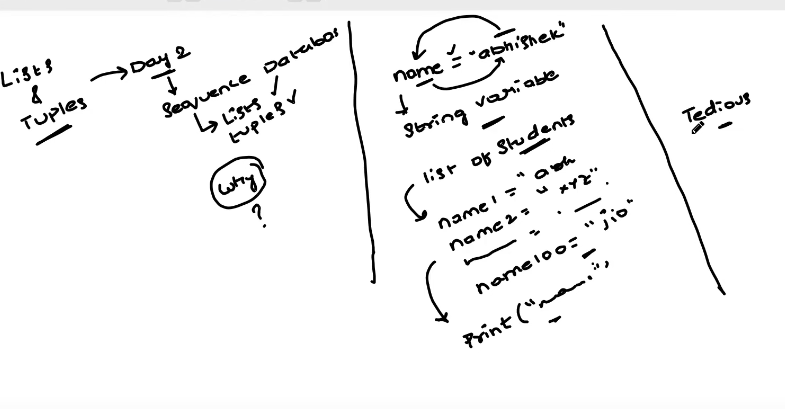 Lists
&
Tuples
Day 2
Sequence Databas
Lists
tuples
Why
?
name = "abhishek"
String variable
list of Students
name1 = "abh
name2 = "xyz"
name100 = "jio"
Print("
Tedious